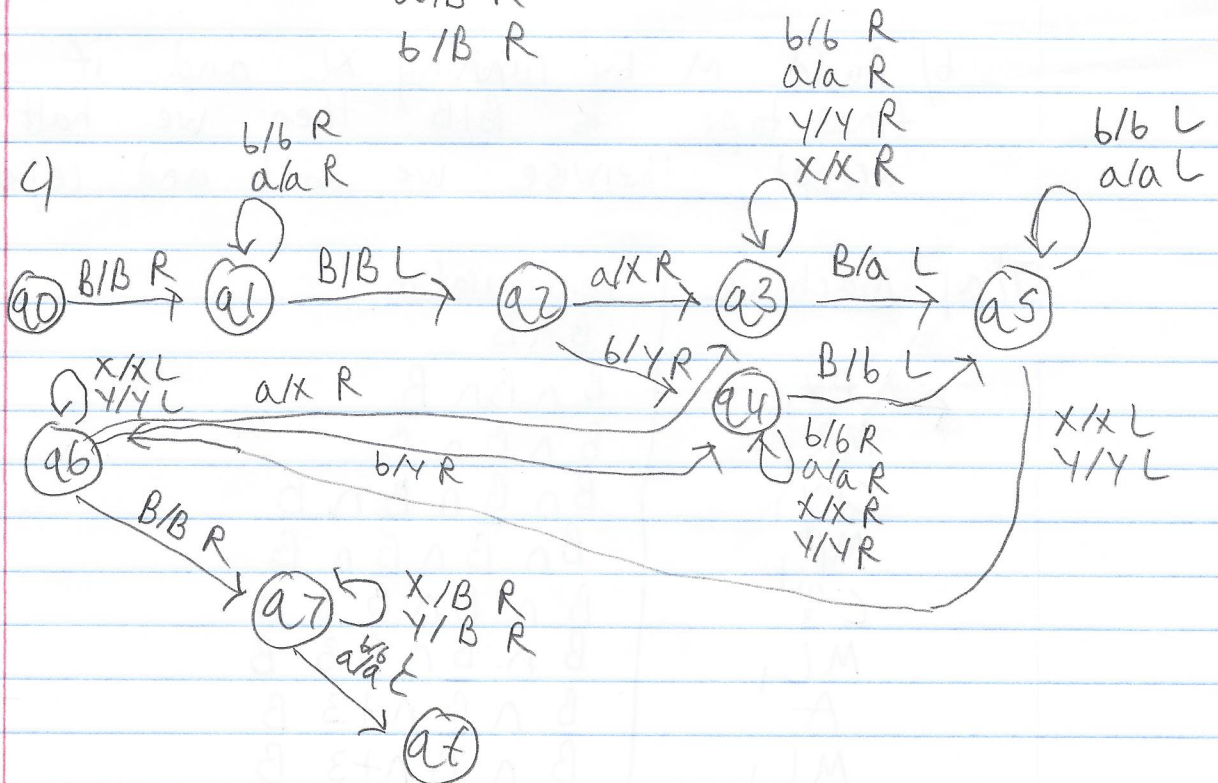 a/B R
b/B R
b/b R
a/a R
Y/Y R
X/X R
b/b R
a/a R
b/b L
a/a L
q0
B/B R
q1
B/B L
q2
a/X R
q3
B/a L
q5
b/Y R
q4
B/b L
X/X L
Y/Y L
a/X R
q6
b/Y R
b/b R
a/a R
X/X R
Y/Y R
X/X L
Y/Y L
B/B R
q7
X/B R
Y/B R
b/b
a/a L
qf